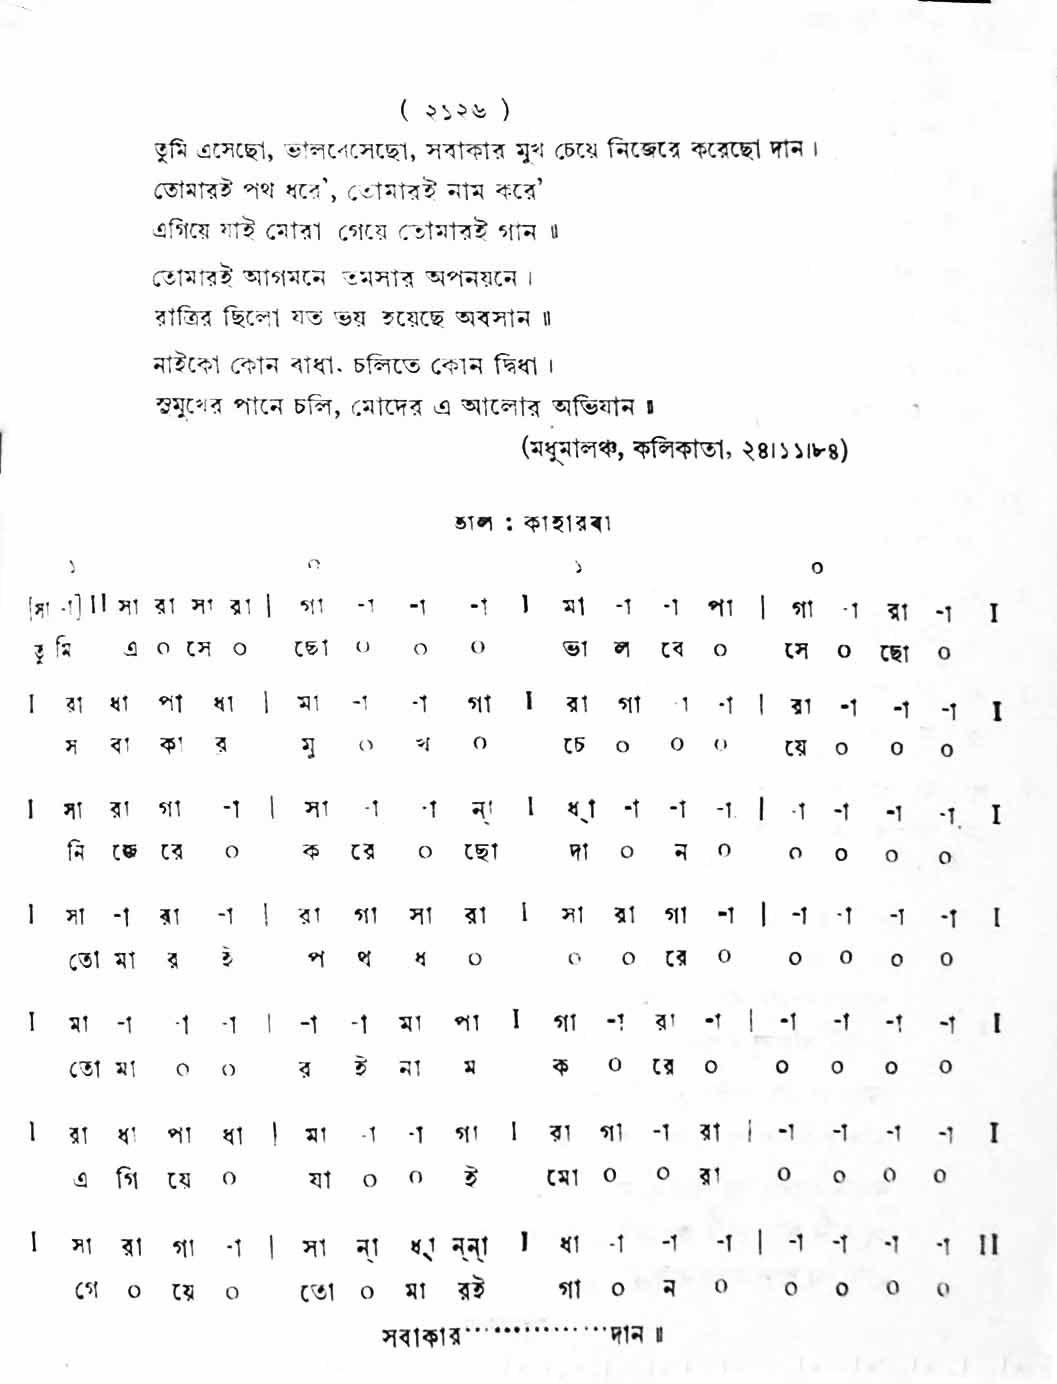 ( ২১২৬ )
তুমি এসেছো, ভালবেসেছো, সবাকার মুখ চেয়ে নিজেরে করেছো দান ।
তোমারই পথ ধরে’, তোমারই নাম করে’
এগিয়ে যাই মোরা গেয়ে তোমারই গান ॥
তোমারই আগমনে তমসার অপনয়নে ।
রাত্রির ছিলো যত ভয় হয়েছে অবসান ॥
নাইকো কোন বাধা. চলিতে কোন দ্বিধা ।
সুমুখের পানে চলি, মোদের এ আলোর অভিযান ॥
(মধুমালঞ্চ, কলিকাতা, ২৪।১১।৮৪)
তাল : কাহারবা
১ ০ ১ ০
[সা -া] II সা রা সা রা | গা -া -া -া I মা -া -া পা | গা -া রা -া I
তু মি এ ০ সে ০ ছো ০ ০ ০ ভা ল বে ০ সে ০ ছো ০
I রা ধা পা ধা | মা -া -া গা I রা গা -া -া | রা -া -া -া I
স বা কা র মু ০ খ ০ চে ০ ০ ০ য়ে ০ ০ ০
I সা রা গা -া | সা -া -া ন্া I ধ্া -া -া -া | -া -া -া -া I
নি জে রে ০ ক রে ০ ছো দা ০ ন ০ ০ ০ ০ ০
I সা -া রা -া | রা গা সা রা I সা রা গা -া | -া -া -া -া I
তো মা র ই প থ ধ ০ ০ ০ রে ০ ০ ০ ০ ০
I মা -া -া -া | -া -া মা পা I গা -া রা -া | -া -া -া -া I
তো মা ০ ০ র ই না ম ক ০ রে ০ ০ ০ ০ ০
I রা ধা পা ধা | মা -া -া গা I রা গা -া রা | -া -া -া -া I
এ গি য়ে ০ যা ০ ০ ই মো ০ ০ রা ০ ০ ০ ০
I সা রা গা -া | সা ন্া ধ্া ন্ন্া I ধা -া -া -া | -া -া -া -া II
গে ০ য়ে ০ তো ০ মা রই গা ০ ন ০ ০ ০ ০ ০
সবাকার···············দান ॥